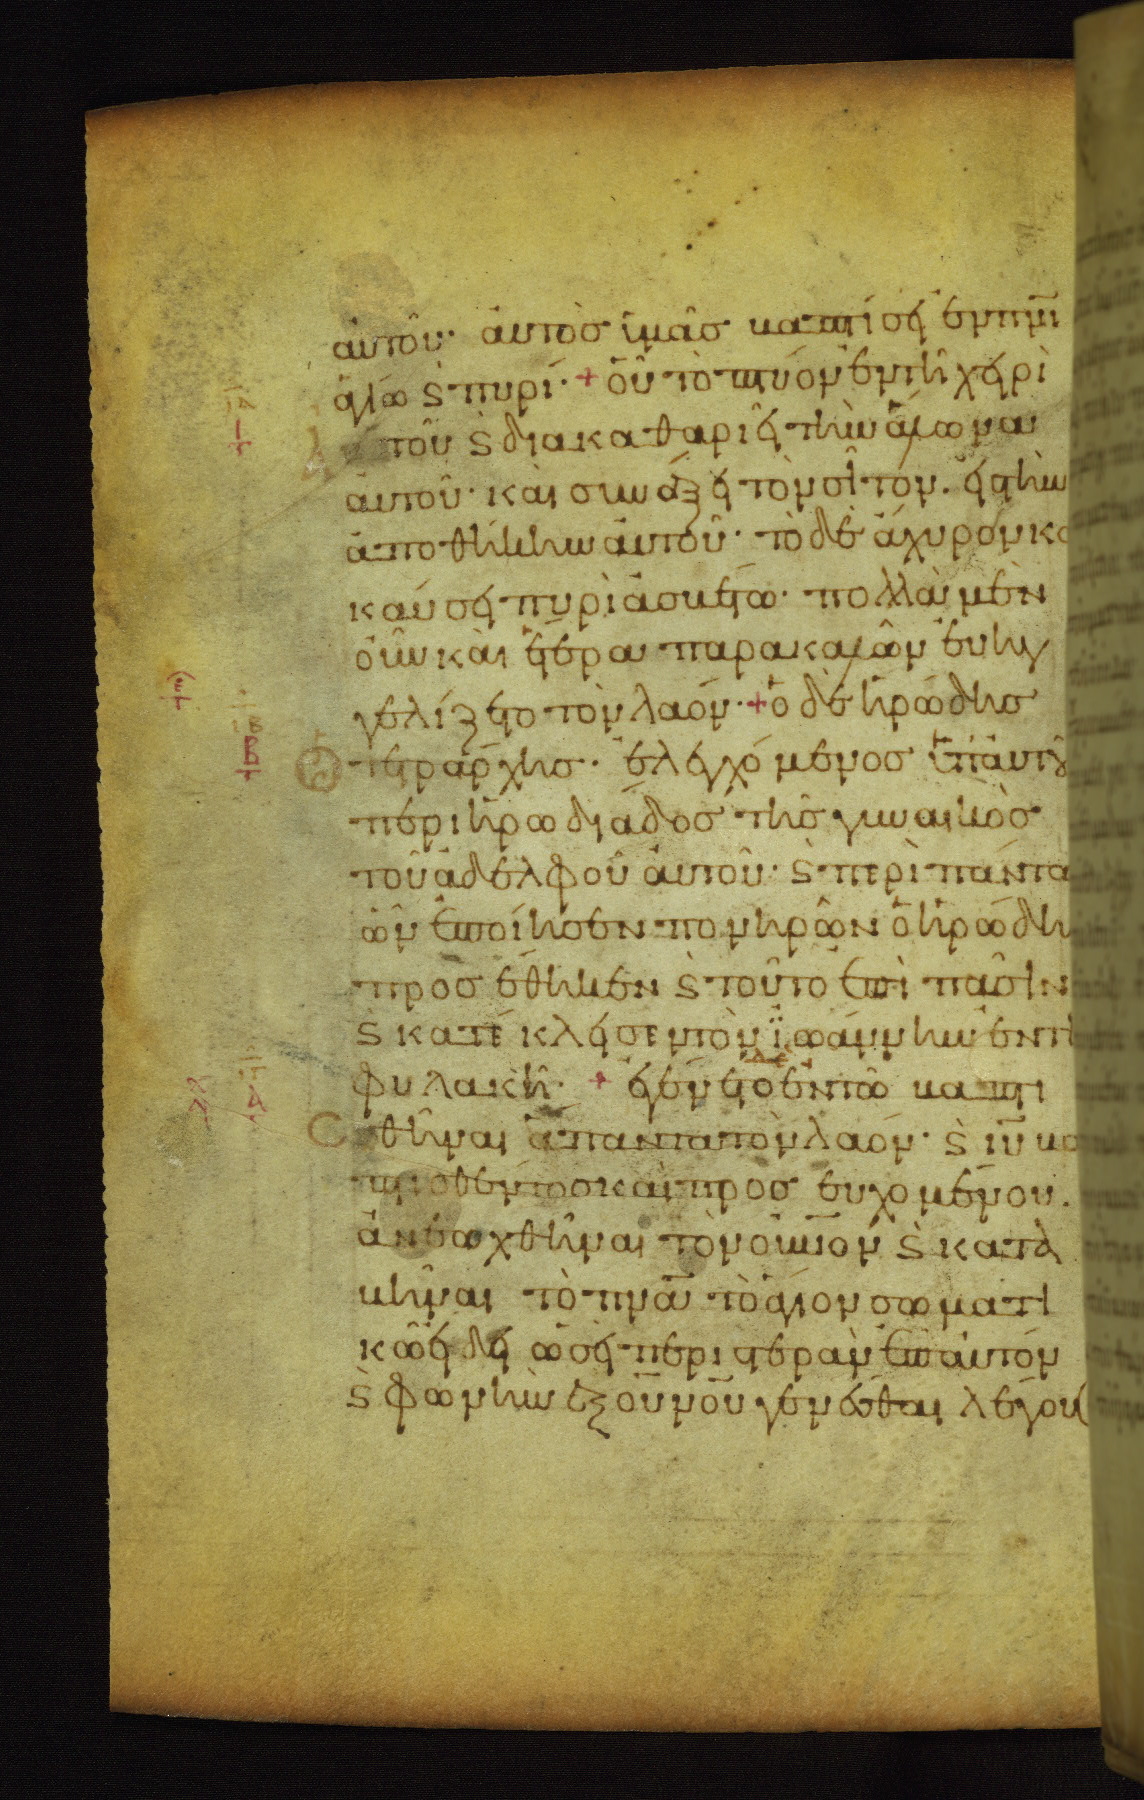 αὐτοῦ· ἀυτὸσ ὑμᾶσ βαπτίσει ἐν πνι
ἁγίω ϛ πυρί· + οὗ τὸ πτύον ἐν τῆ χειρὶ
τοῦ ϛ διακαθαριεῖ τὴν ἅλωνα
ἀυτοῦ· καὶ συνάξει τὸν σῖτον. εἰσ τὴν
ἀποθήκην ἀυτοῦ· τὸ δὲ ἄχυρον κα
καύσει πυρὶ ἀσβέστω· πολλὰ μὲν
οὖν καὶ ἕτερα παρακαλῶν ἐυηγ
γελίζετο τὸν λαόν· + ὁ δὲ ἡρώδησ
τετράρχησ· ἐλεγχόμενοσ ὑπ ἀυτοῦ
περὶ ἡρωδιάδοσ τῆσ γυναικὸσ
τοῦ ἀδελφοῦ ἀυτοῦ· ϛ περὶ πάντα
ὧν ἐποίησεν πονηρῶν ὁ ἡρώδη
προσέθηκεν ϛ τοῦτο ἐπὶ πᾶσιν
ϛ κατέκλεισεν τὸν ϊωάννην ἐν τῆ
φυλακῆ· + ἐγένετο δὲ ἐν τῶ βαπτι
σθῆναι ἅπαντα τὸν λαόν· ϛ ιυ βα
πτισθέντοσ καὶ προσευχομένου.
ἀνεωχθῆναι τὸν οὐνον ϛ κατα
βῆναι τὸ πνα τὸ ἅγιον σωματι
κῶ εἴδει ὡσεὶ περιστερὰν ἐπ ἀυτόν
ϛ φωνὴν ἐξ οὐνου γενέσθαι λέγου